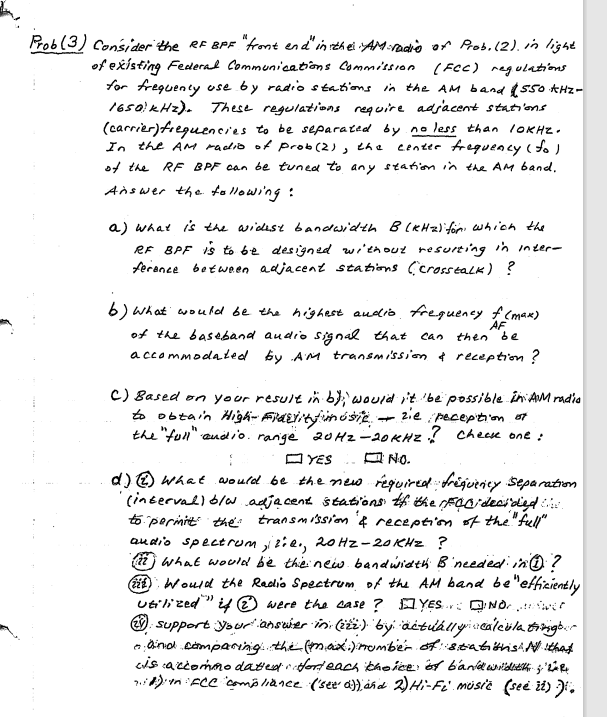 Prob(3) Consider the RF BPF "front end" in the AM radio of Prob.(2). in light
of existing Federal Communications Commission (FCC) regulations
for frequency use by radio stations in the AM band (550 kHz-
1650 kHz). These regulations require adjacent stations
(carrier) frequencies to be separated by no less than 10KHz.
In the AM radio of Prob(2), the center frequency (fo)
of the RF BPF can be tuned to any station in the AM band.
Answer the following:
a) what is the widest bandwidth B (kHz) for which the
RF BPF is to be designed without resulting in inter-
ference between adjacent stations (crosstalk) ?
b) what would be the highest audio frequency f AF (max)
of the baseband audio signal that can then be
accommodated by AM transmission & reception ?
c) Based on your result in b), would it be possible in AM radio
to obtain High-Fidelity music - i.e. reception of
the "full" audio range 20Hz-20KHz ? Check one :
□ YES □ NO.
d) (i) what would be the new required frequency separation
(interval) b/w adjacent stations if the FCC decided
to permit the transmission & reception of the "full"
audio spectrum, i.e., 20Hz-20KHz ?
(ii) what would be the new bandwidth B needed in (i) ?
(iii) Would the Radio Spectrum of the AM band be "efficiently
utilized" if (i) were the case ? □ YES □ NO.
(iv) support your answer in (iii) by actually calculating
and comparing the (max.) number of stations N that
is accommodated for each choice of bandwidth, i.e.
1) in FCC compliance (see a)) and 2) Hi-Fi music (see ii) ).